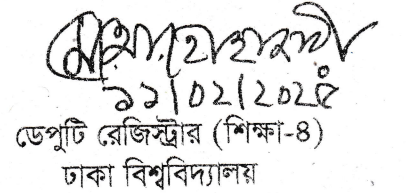 ১১/০২/২০২৫
ডেপুটি রেজিস্ট্রার (শিক্ষা-৪)
ঢাকা বিশ্ববিদ্যালয়